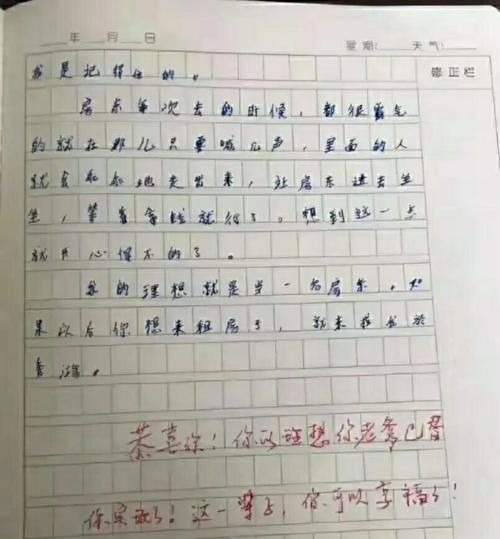 年 月 日 星期: 天气:
修正栏
我是记得住的。
房东每次去的时候,都很霸气
的就在那儿只要喊几声,里面的人
就会乖乖地走出来,让房东进去坐
坐,等着拿钱就行了。想到这一点
就开心得不的了。
我的理想就是当一名房东,如
果以后你想来租房子,就来找我
恭喜你!你的理想你老爹已替
你实现了!这一辈子,你可以享福了!